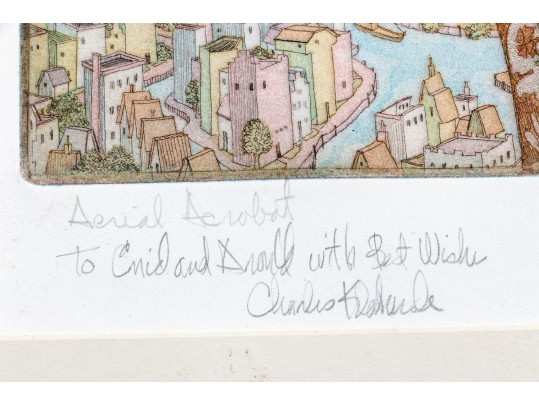 Aerial Acrobat
To Enid and with Best Wishes
Charles